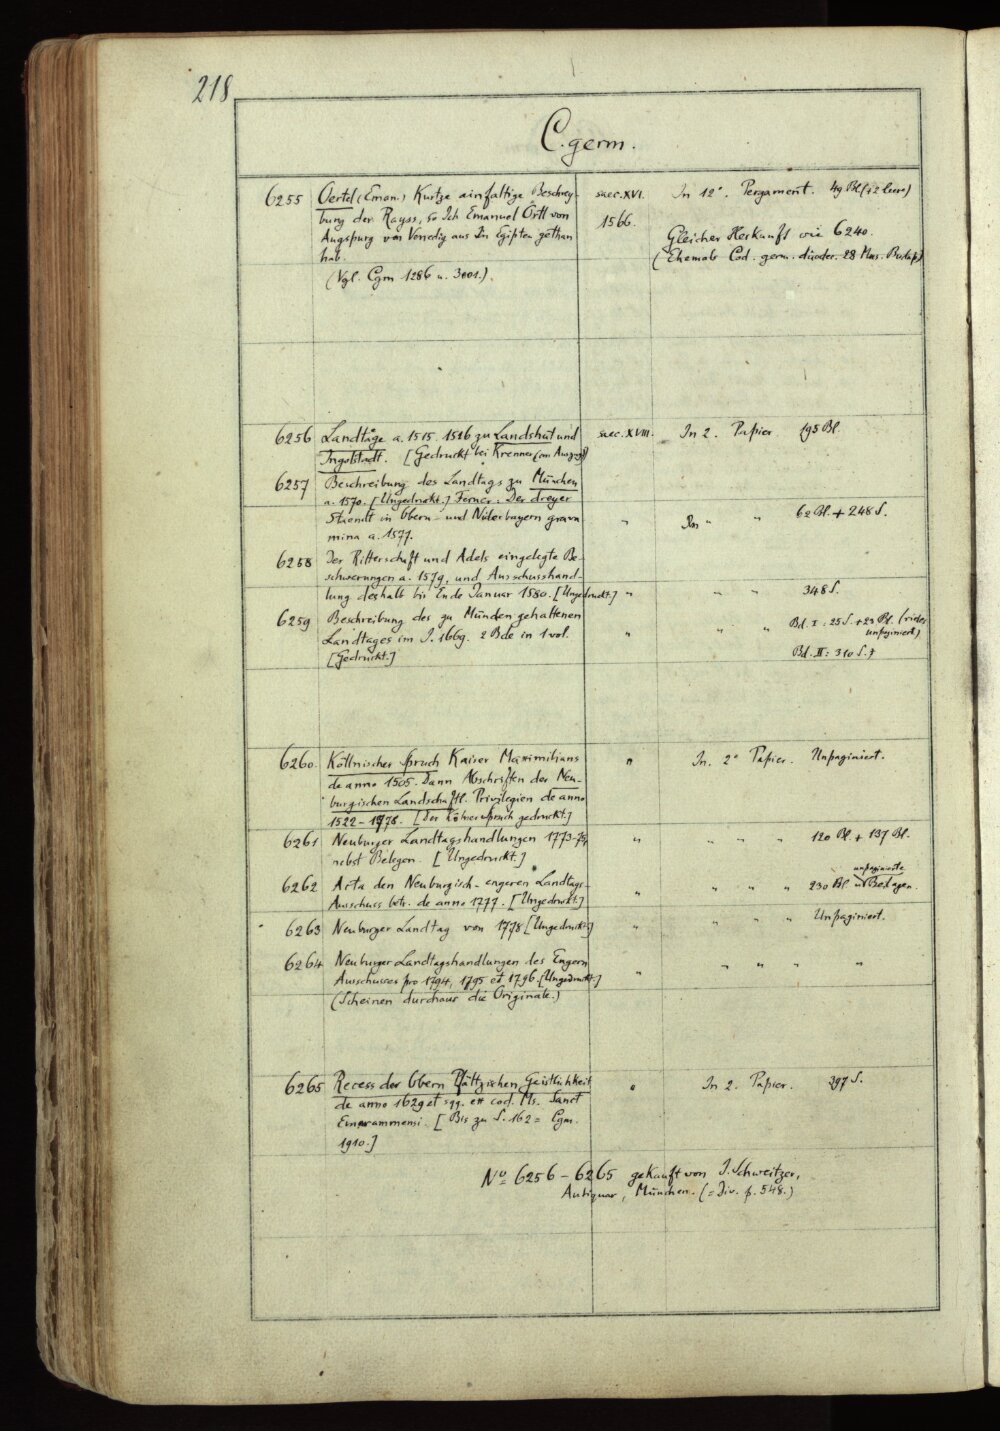 218
C. germ.
6255 Oertel (Eman.) Kurtze ainfaltige Beschrey- saec. XVI. In 12°. Pergament. 49 Bl (+ 2 leere)
burg der Rayss, so Ich Emanuel Örtl von 1566.
Augspurg von Venedig aus In Egipten gethan Gleicher Herkunft wie 6240.
hab. (Ehemals Cod. germ. duodec. 28 Mus.
(Vgl. Cgm 1286 u. 3001.)
6256 Landtäge a. 1515 1516 zu Landshut und saec. XVIII. In 2. Papier 195 Bl
Ingolstadt. [Gedruckt bei Krenner (im Auszug)]
6257 Beschreibung des Landtags zu München
a. 1570. [Ungedruckt.] Ferner: Der dreyer
Staendt in Obern- und Niderbayern grava „ In „ „ 62 Bl. + 248 S.
mina a. 1577.
6258 Der Ritterschaft und Adels eingelegte Be-
schwerungen a. 1579, und Ausschusshand-
lung deshalb bis Ende Januar 1580. [Ungedruckt.] „ „ „ 348 S.
6259 Beschreibung des zu München gehaltenen Bd. I: 25 S. + 23 Bl. (vieles
Landtages im J. 1669. 2 Bde in 1 vol. „ „ „ unpaginiert)
[Gedruckt.] Bd. II: 310 S. +
6260. Köllnischer Spruch Kaiser Maximilians „ In. 2° Papier. Unpaginiert.
de anno 1505. Dann Abschriften der Neu-
burgischen Landschaftl. Privilegien de anno
1522 - 1578. [Der Kölner Spruch gedruckt.]
6261 Neuburger Landtagshandlungen 1773-74, „ „ „ „ 120 Bl. + 137 Bl.
nebst Belegen. [Ungedruckt.]
6262 Acta den Neuburgisch-engeren Landtags- „ „ „ „ 230 Bl u. unpaginierte Beilagen.
Ausschuss betr. de anno 1777. [Ungedruckt.]
6263 Neuburger Landtag von 1778 [Ungedruckt.] „ „ „ „ Unpaginiert.
6264 Neuburger Landtagshandlungen des Engern „ „ „ „ „
Ausschusses pro 1794, 1795 et 1796 [Ungedruckt.]
(Scheinen durchaus die Originale.)
6265 Recess der Obern Pfältzischen Geistlichkeit „ In 2. Papier. 397 S.
de anno 1629 et sqq. ex cod. Ms. Sanct
Emerammensi. [Bis zu S. 162 = Cgm.
1910.]
No 6256 - 6265 gekauft von J. Schweitzer,
Antiquar, München. (= Div. p. 548.)